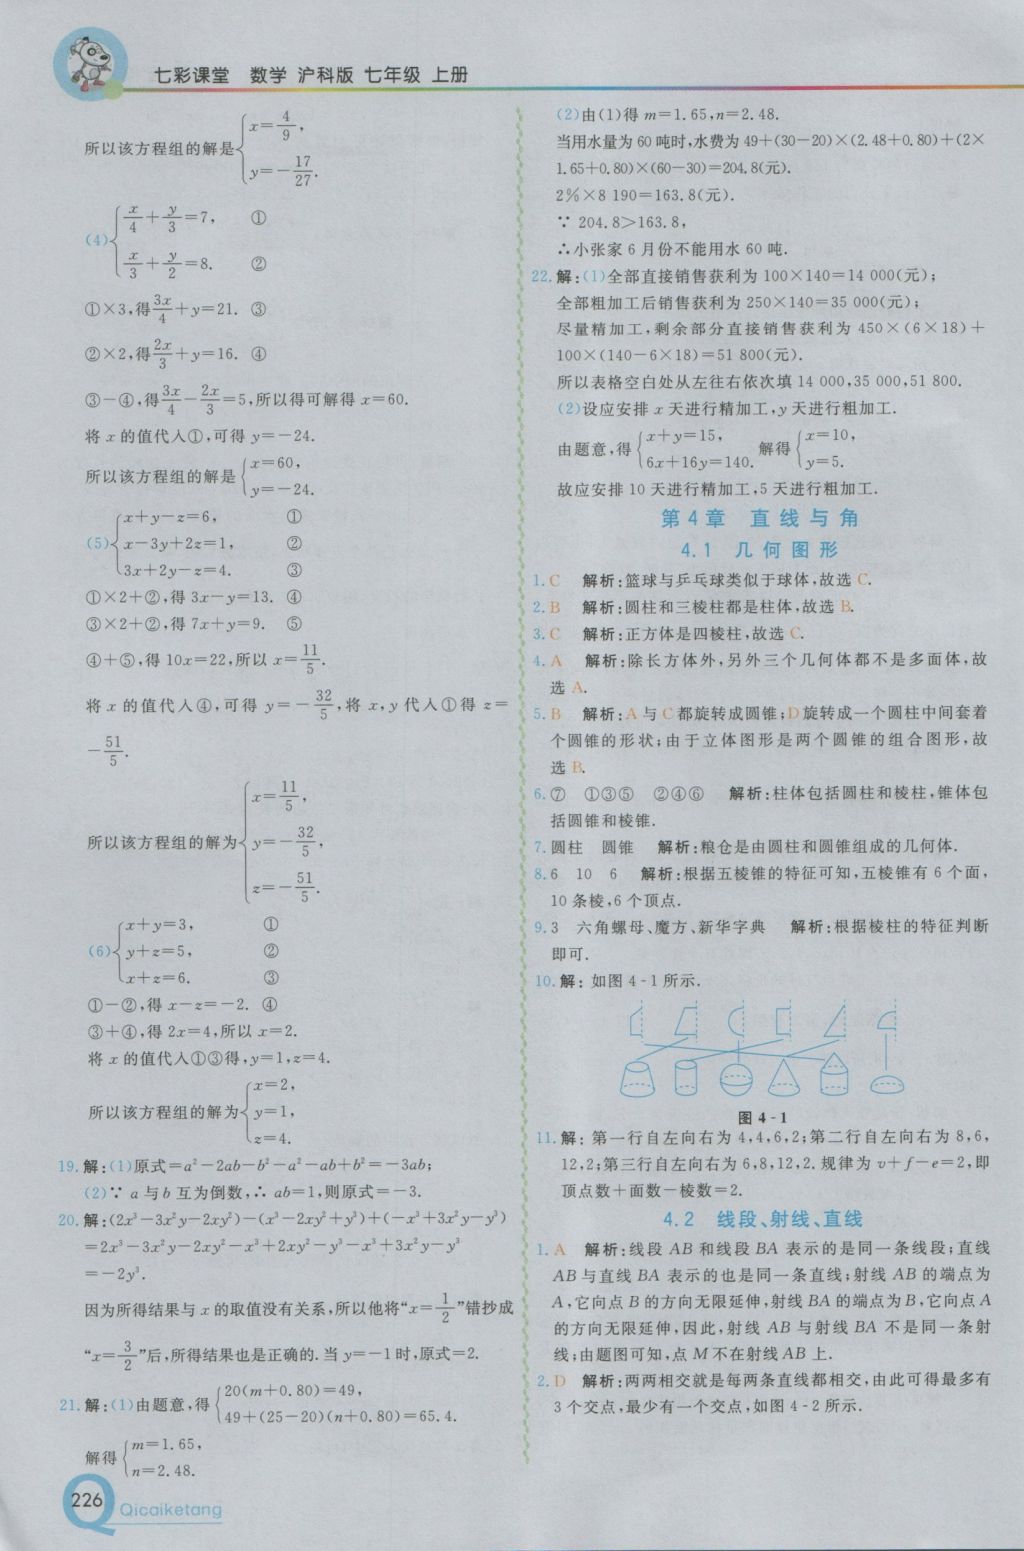 七彩课堂 数学 沪科版 七年级 上册
所以该方程组的解是{x=4/9,
y=-17/27.
(4){x/4+y/3=7, ①
x/3+y/2=8. ②
①×3,得3x/4+y=21. ③
②×2,得2x/3+y=16. ④
③-④,得3x/4-2x/3=5,所以得可解得 x=60.
将 x 的值代入①,可得 y=-24.
所以该方程组的解是{x=60,
y=-24.
(5){x+y-z=6, ①
x-3y+2z=1, ②
3x+2y-z=4. ③
①×2+②,得 3x-y=13. ④
③×2+②,得 7x+y=9. ⑤
④+⑤,得 10x=22,所以 x=11/5.
将 x 的值代入④,可得 y=-32/5,将 x,y 代入①得 z=
-51/5.
所以该方程组的解为{x=11/5,
y=-32/5,
z=-51/5.
(6){x+y=3, ①
y+z=5, ②
x+z=6. ③
①-②,得 x-z=-2. ④
③+④,得 2x=4,所以 x=2.
将 x 的值代入①③得,y=1,z=4.
所以该方程组的解为{x=2,
y=1,
z=4.
19.解:(1)原式=a²-2ab-b²-a²-ab+b²=-3ab;
(2)∵ a 与 b 互为倒数,∴ ab=1,则原式=-3.
20.解:(2x³-3x²y-2xy²)-(x³-2xy²+y³)+(-x³+3x²y-y³)
=2x³-3x²y-2xy²-x³+2xy²-y³-x³+3x²y-y³
=-2y³.
因为所得结果与 x 的取值没有关系,所以他将“x=1/2”错抄成
“x=3/2”后,所得结果也是正确的.当 y=-1 时,原式=2.
21.解:(1)由题意,得{20(m+0.80)=49,
49+(25-20)(n+0.80)=65.4.
解得{m=1.65,
n=2.48.
226
Qicaiketang
(2)由(1)得 m=1.65,n=2.48.
当用水量为 60 吨时,水费为 49+(30-20)×(2.48+0.80)+(2×
1.65+0.80)×(60-30)=204.8(元).
2%×8 190=163.8(元).
∵ 204.8>163.8,
∴小张家 6 月份不能用水 60 吨.
22.解:(1)全部直接销售获利为 100×140=14 000(元);
全部粗加工后销售获利为 250×140=35 000(元);
尽量精加工,剩余部分直接销售获利为 450×(6×18)+
100×(140-6×18)=51 800(元).
所以表格空白处从左往右依次填 14 000,35 000,51 800.
(2)设应安排 x 天进行精加工,y 天进行粗加工.
由题意,得{x+y=15, 解得{x=10,
6x+16y=140. y=5.
故应安排 10 天进行精加工,5 天进行粗加工.
第 4 章 直线与角
4.1 几何图形
1.C 解析:篮球与乒乓球类似于球体,故选 C.
2.B 解析:圆柱和三棱柱都是柱体,故选 B.
3.C 解析:正方体是四棱柱,故选 C.
4.A 解析:除长方体外,另外三个几何体都不是多面体,故
选 A.
5.B 解析:A 与 C 都旋转成圆锥;D 旋转成一个圆柱中间套着
个圆锥的形状;由于立体图形是两个圆锥的组合图形,故
选 B.
6.⑦ ①③⑤ ②④⑥ 解析:柱体包括圆柱和棱柱,锥体包
括圆锥和棱锥.
7.圆柱 圆锥 解析:粮仓是由圆柱和圆锥组成的几何体.
8.6 10 6 解析:根据五棱锥的特征可知,五棱锥有 6 个面,
10 条棱,6 个顶点.
9.3 六角螺母、魔方、新华字典 解析:根据棱柱的特征判断
即可.
10.解: 如图 4-1 所示.
图 4-1
11.解: 第一行自左向右为 4,4,6,2;第二行自左向右为 8,6,
12,2;第三行自左向右为 6,8,12,2. 规律为 v+f-e=2,即
顶点数+面数-棱数=2.
4.2 线段、射线、直线
1.A 解析:线段 AB 和线段 BA 表示的是同一条线段;直线
AB 与直线 BA 表示的也是同一条直线;射线 AB 的端点为
A,它向点 B 的方向无限延伸,射线 BA 的端点为 B,它向点 A
的方向无限延伸,因此,射线 AB 与射线 BA 不是同一条射
线;由题图可知,点 M 不在射线 AB 上.
2.D 解析:两两相交就是每两条直线都相交,由此可得最多有
3 个交点,最少有一个交点,如图 4-2 所示.